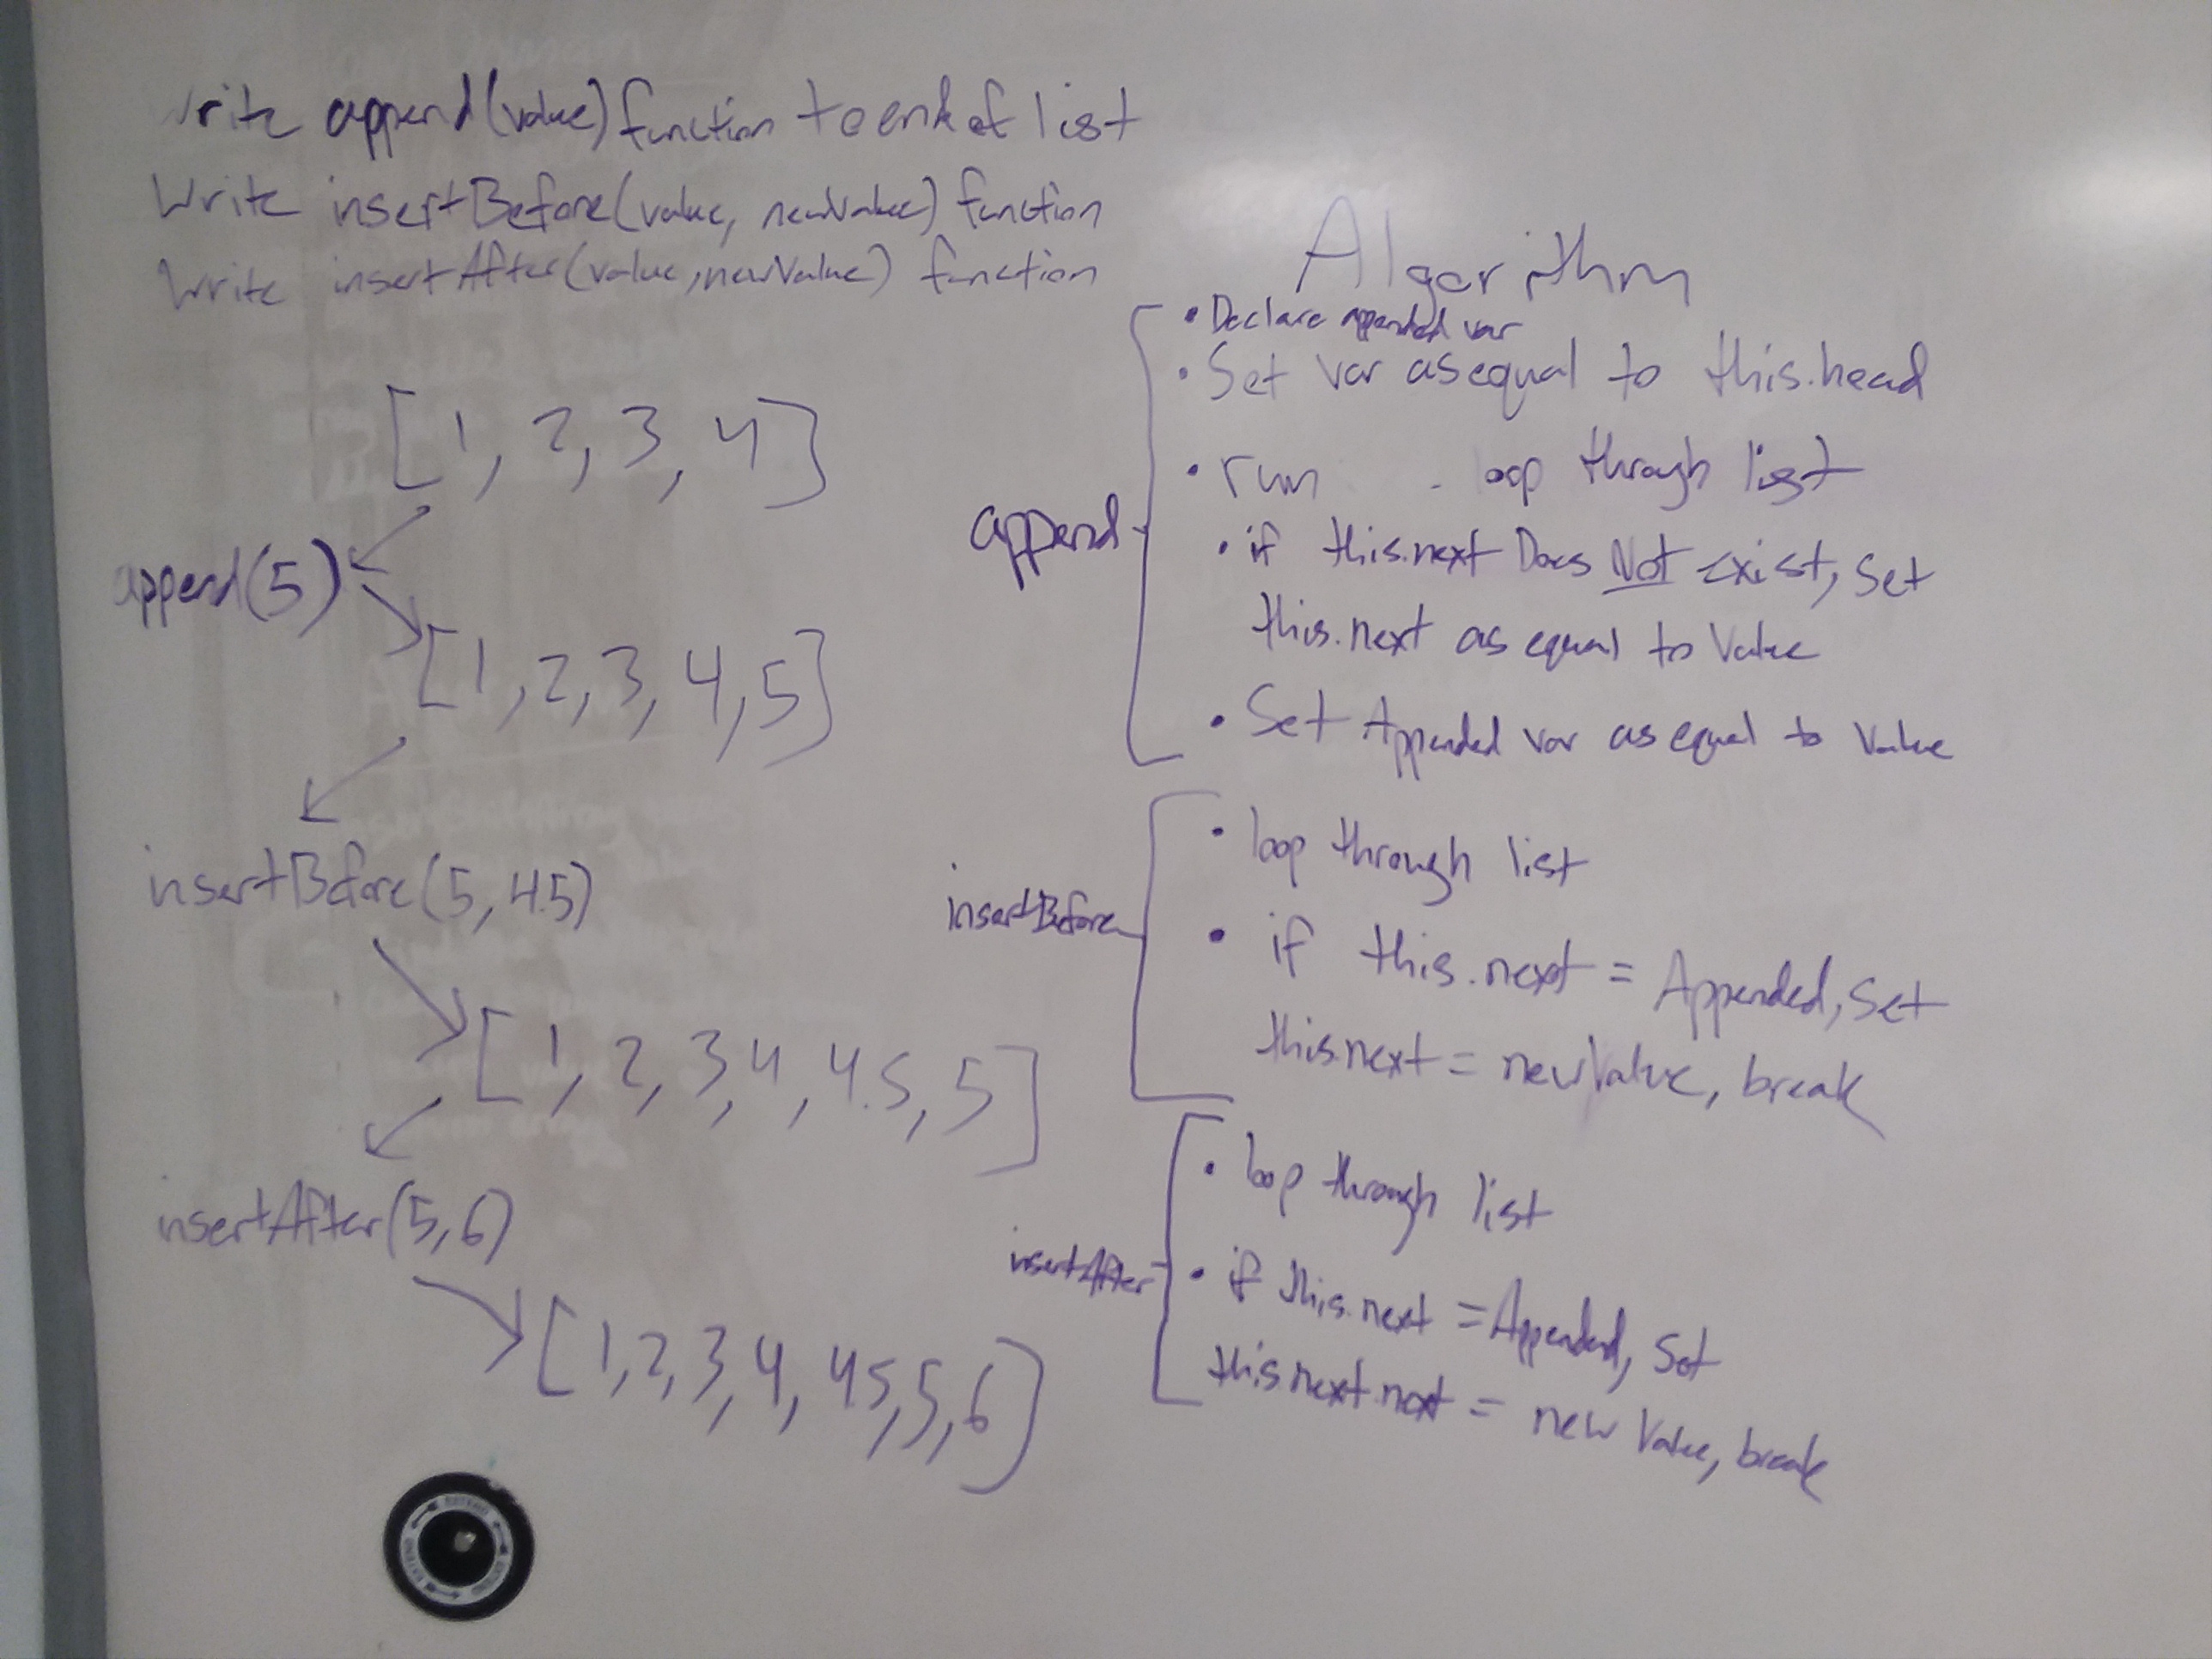 Write append(value) function to end of list
Write insertBefore(value, newValue) function
Write insertAfter(value, newValue) function
[1, 2, 3, 4]
append(5)
[1, 2, 3, 4, 5]
insertBefore(5, 4.5)
[1, 2, 3, 4, 4.5, 5]
insertAfter(5, 6)
[1, 2, 3, 4, 4.5, 5, 6]
Algorithm
append
• Declare appended var
• Set var as equal to this.head
• run loop through list
• if this.next Does Not exist, set
this.next as equal to Value
• Set Appended var as equal to Value
insertBefore
• loop through list
• if this.next = Appended, Set
this.next = newValue, break
insertAfter
• loop through list
• if this.next = Appended, Set
this.next.next = new Value, break